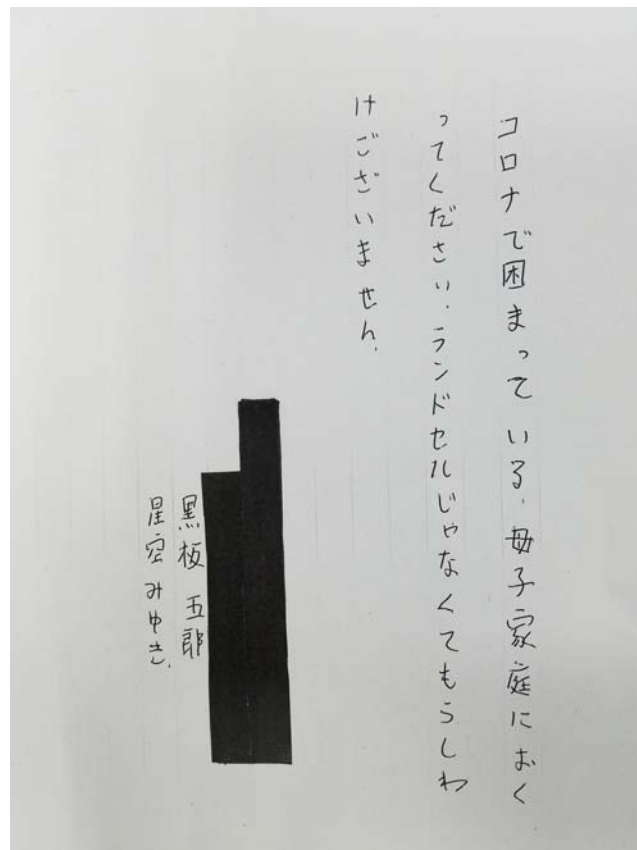 コロナで困まっている、母子家庭におく
ってください。ランドセルじゃなくてもうしわ
けございません。
黒板 五郎
星空 みゆき。